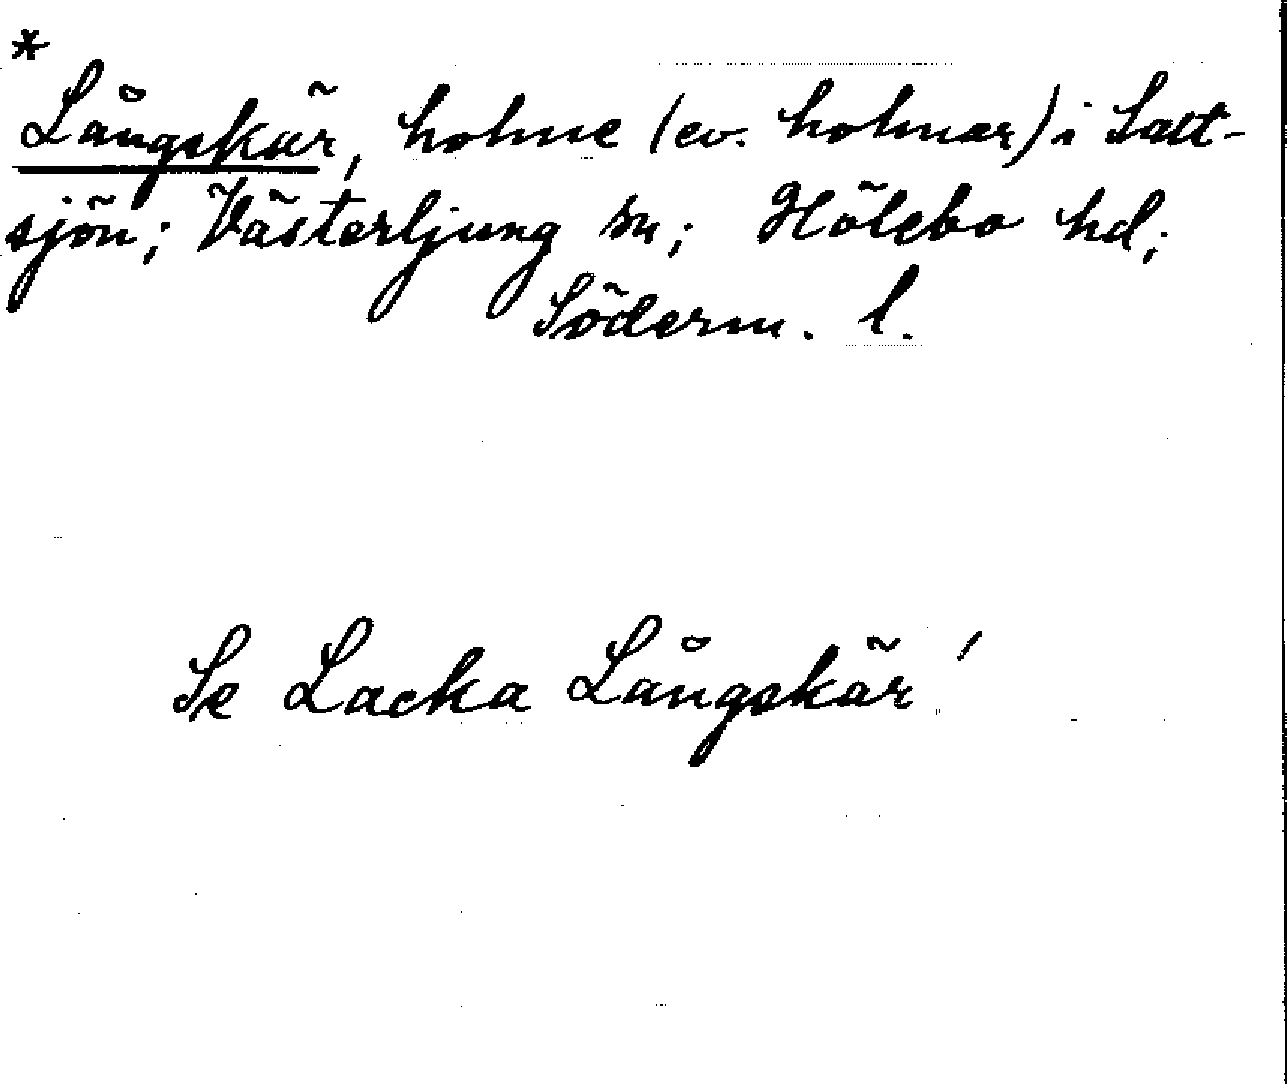 *
Långskär, holme (ev. holmar) i Salt-
sjön; Västerljung sn; Hölebo hd;
Söderm. l.
Se Lacka Långskär!